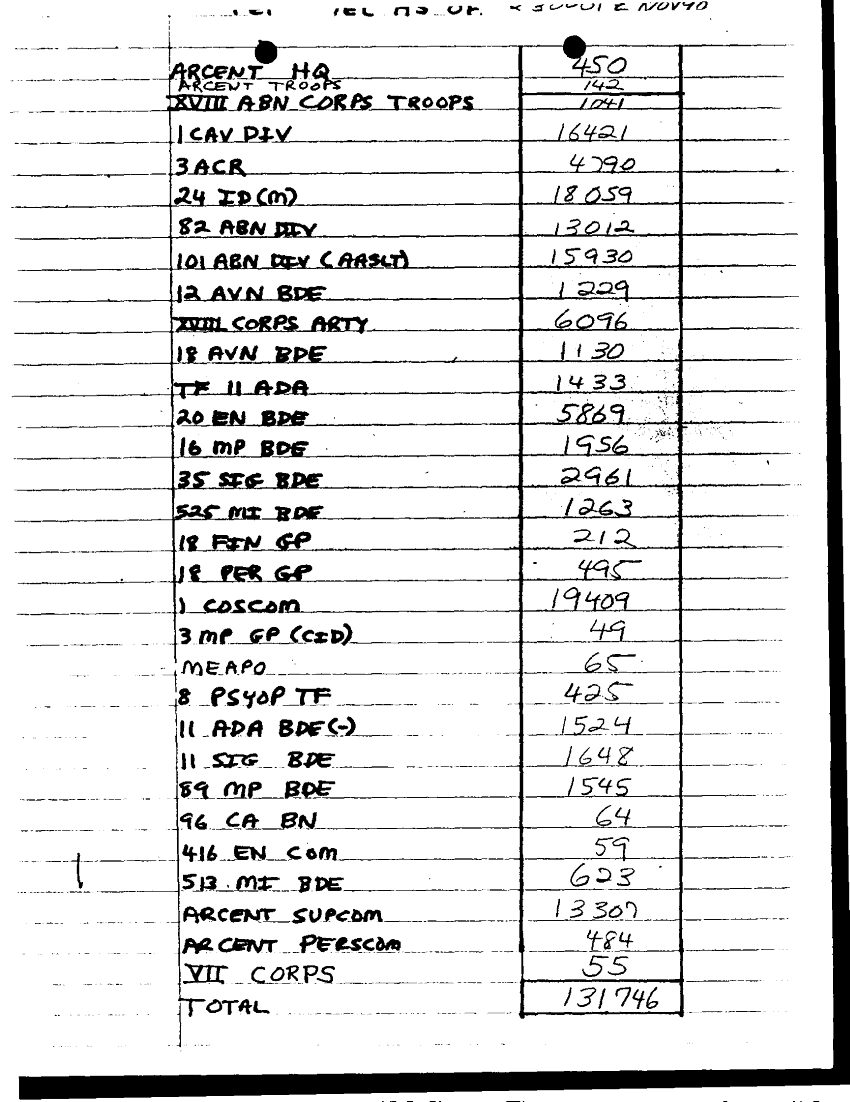 ARCENT HQ 450
ARCENT TROOPS 142
XVIII ABN CORPS TROOPS 1041
1 CAV DIV 16421
3 ACR 4790
24 ID (M) 18059
82 ABN DIV 13012
101 ABN DIV (AASLT) 15930
12 AVN BDE 1229
XVIII CORPS ARTY 6096
18 AVN BDE 1130
TF 11 ADA 1433
20 EN BDE 5869
16 MP BDE 1956
35 SIG BDE 2961
525 MI BDE 1263
18 FIN GP 212
18 PER GP 495
1 COSCOM 19409
3 MP GP (CID) 49
MEAPO 65
8 PSYOP TF 425
11 ADA BDE (-) 1524
11 SIG BDE 1648
89 MP BDE 1545
96 CA BN 64
416 EN COM 59
513 MI BDE 623
ARCENT SUPCOM 13307
ARCENT PERSCOM 484
VII CORPS 55
TOTAL 131746